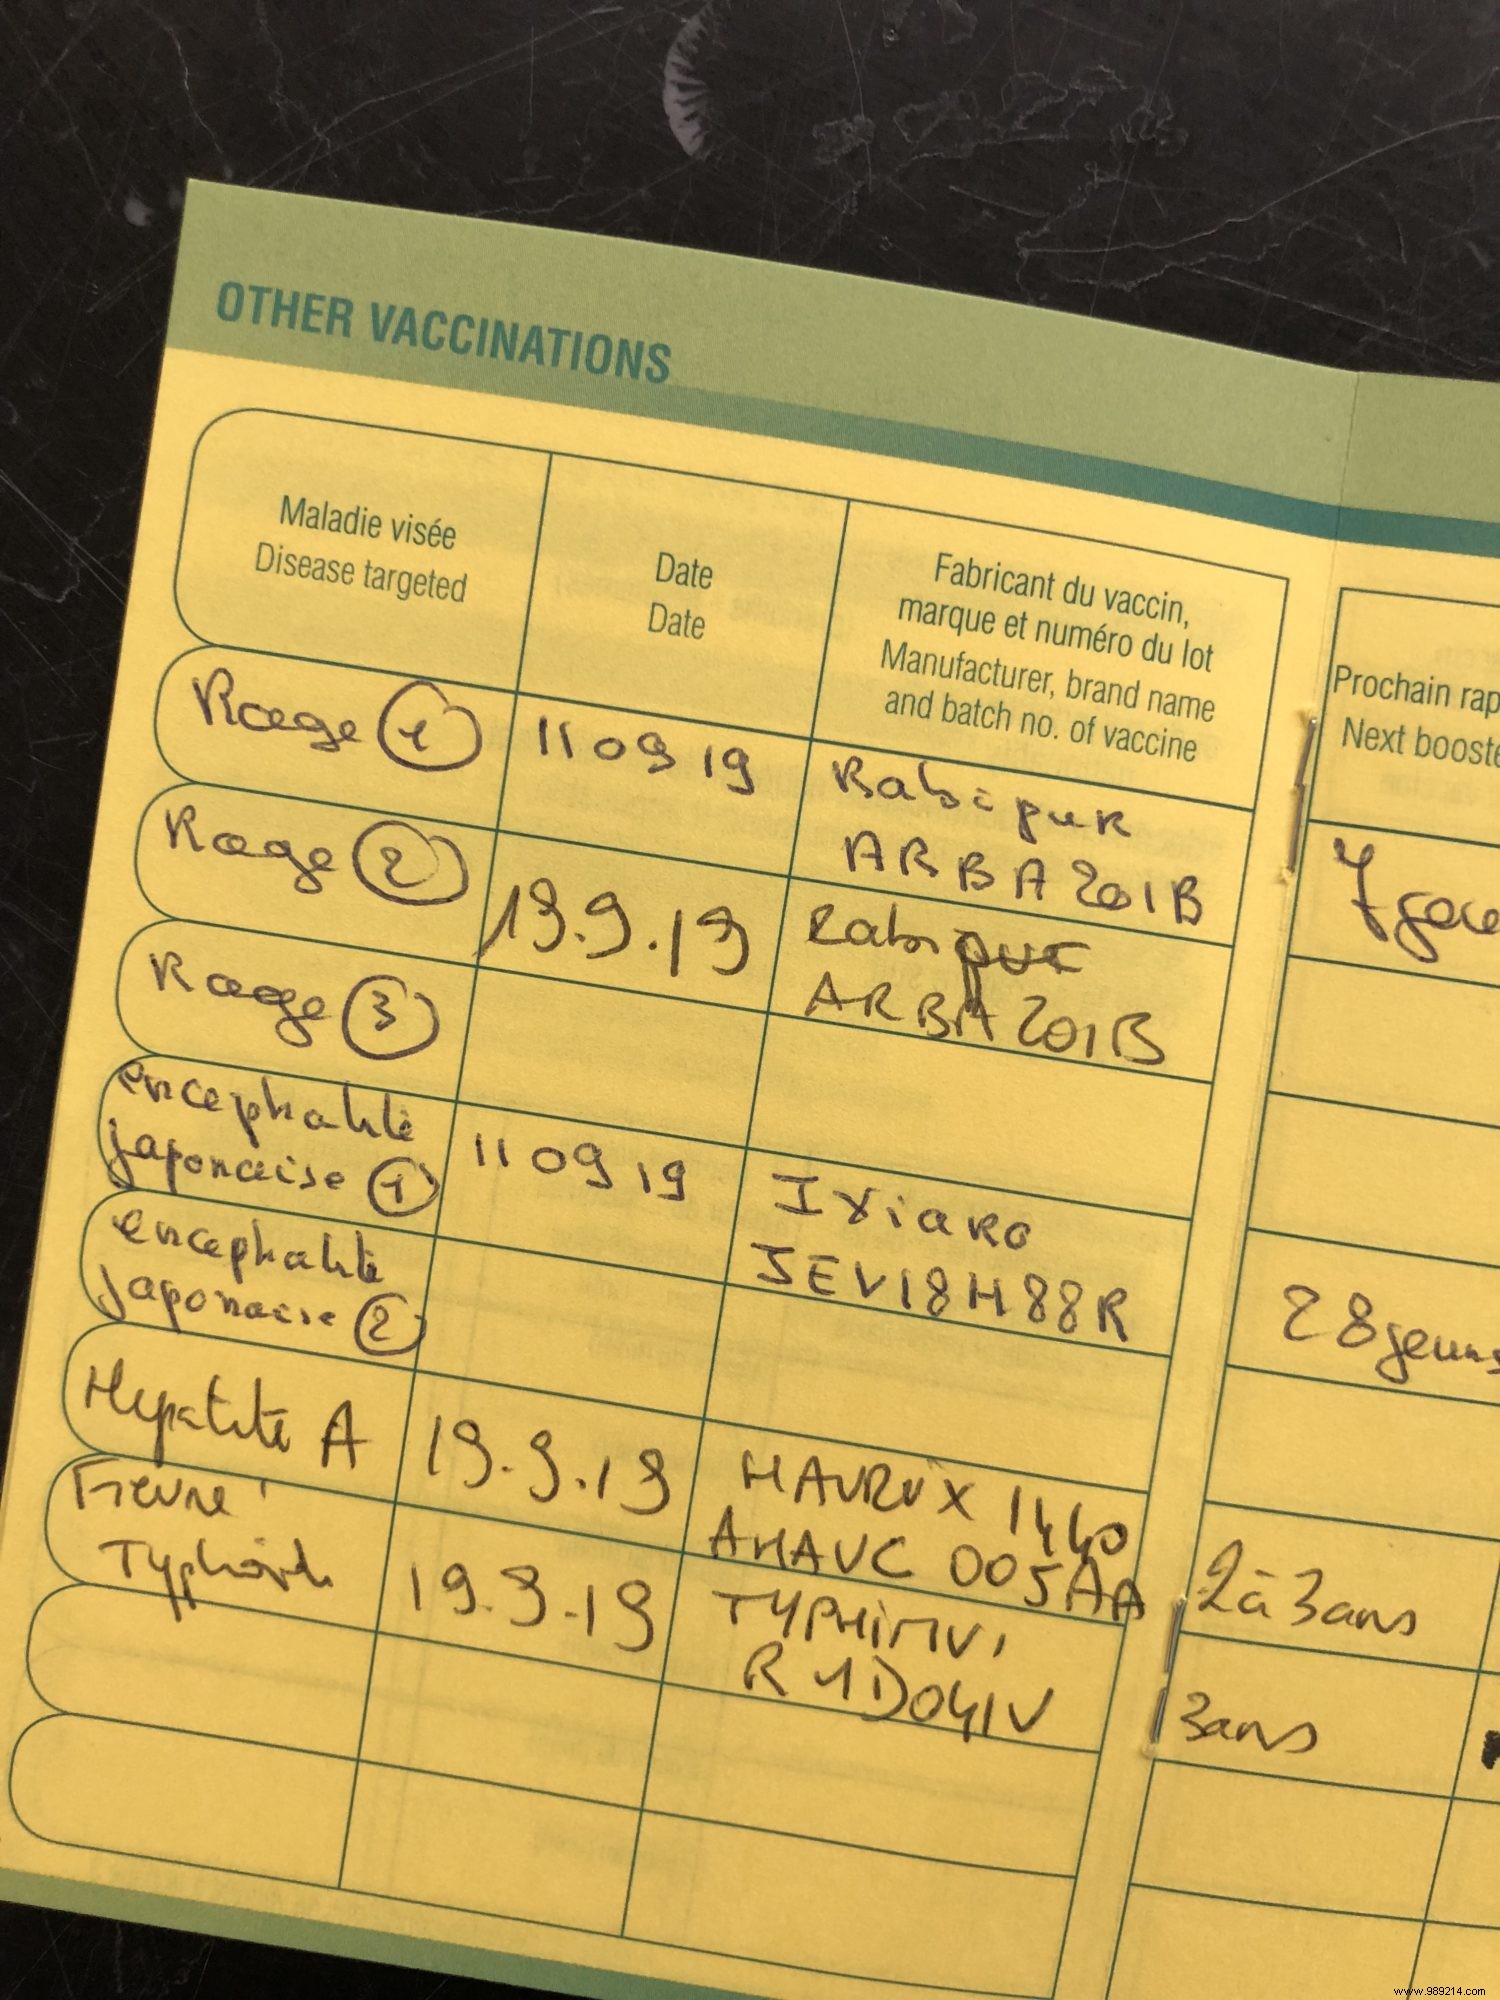 OTHER VACCINATIONS
Maladie visée
Disease targeted
Date
Date
Fabricant du vaccin,
marque et numéro du lot
Manufacturer, brand name
and batch no. of vaccine
Prochain rap
Next booste
Rage 1
11 09 19
Rabipur
ARBA201B
7 jou
Rage 2
19.9.19
Rabipur
ARBA201B
Rage 3
encephalite
japonaise 1
11 09 19
Ixiaro
JEV18H88R
28 jours
encephalite
japonaise 2
Hepatite A
19.9.19
HAVRIX 1440
AHAVC005AA
2 à 3 ans
Fievre
Typhoïde
19.9.19
TYPHIMVI
R1D041V
3 ans
www.989214.com